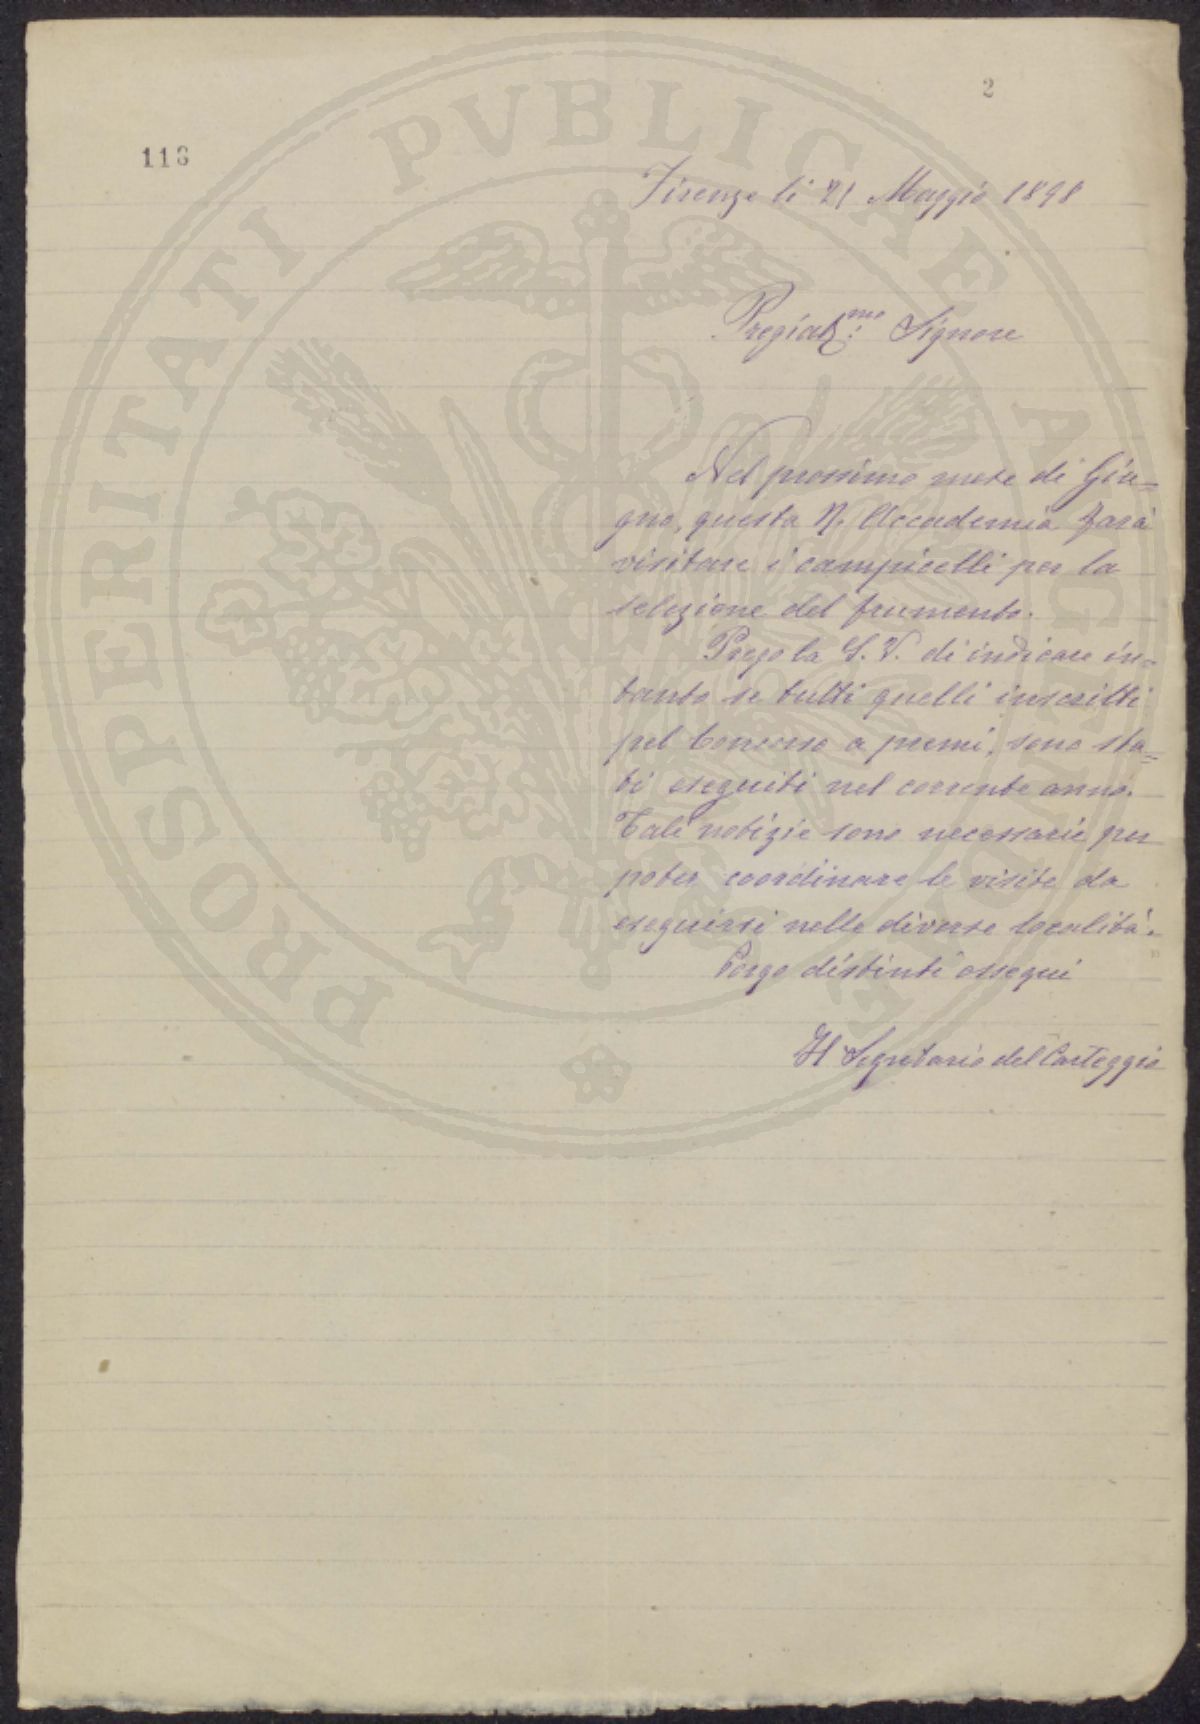 2
116
Firenze li 21 Maggio 1898
Pregiat.mo Signore
Nel prossimo mese di Giu=
gno, questa R. Accademia farà
visitare i campicelli per la
selezione del frumento.
Prego la S. V. di indicare in=
tanto se tutti quelli inscritti
pel Concorso a premi, sono sta=
ti eseguiti nel corrente anno.
Tali notizie sono necessarie per
poter coordinare le visite da
eseguirsi nelle diverse località.
Porgo distinti ossequi
Il Segretario del Carteggio
PROSPERITATI PVBLICAE AVGENDAE